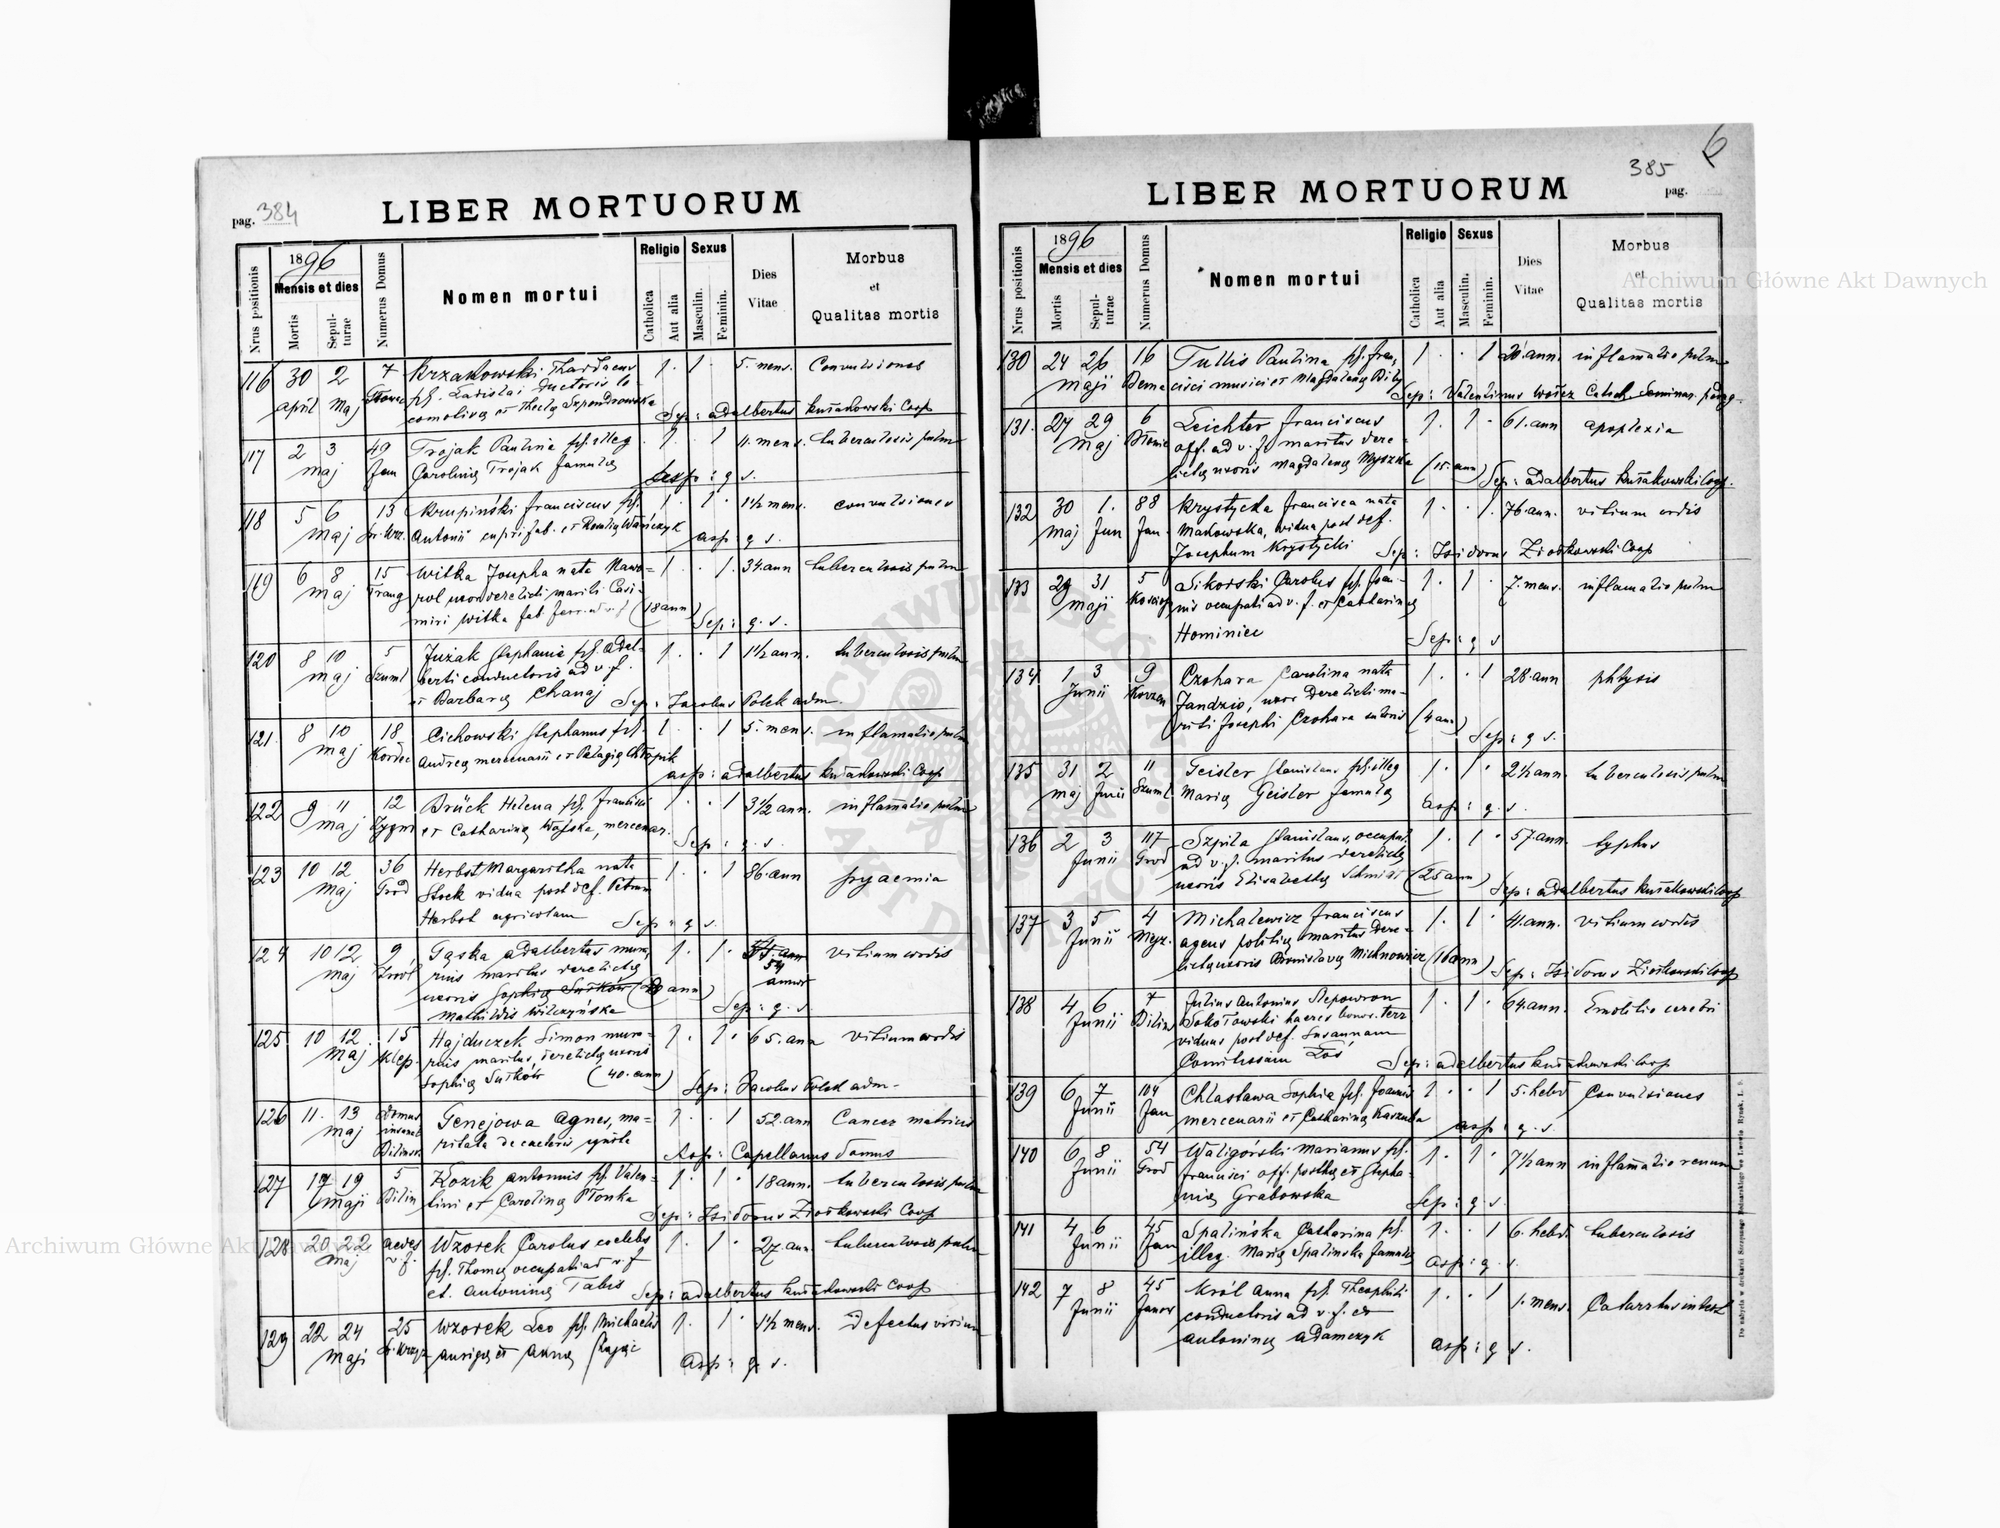 pag. 384
LIBER MORTUORUM
Nrus positionis
1896
Mensis et dies
Mortis
Sepulturae
Numerus Domus
Nomen mortui
Religio
Catholica
Aut alia
Sexus
Masculin.
Feminin.
Dies Vitae
Morbus
et
Qualitas mortis
116 30 2 7 Krzakowski Thadaeus 1 · 1 · 5. mens. Convulsiones
april Maj
Sep: adalbertus Kusiakowski Coop
117 2 3 49 Trojak Paulina fil. illeg 1 · · 1 11. mens. tuberculosis pulm
maj Jan Carolina Trojak famula
asp: q s.
118 5 6 13 Krupiński Franciscus fil. 1 · 1 · 1½ mens. convulsiones
maj Antonii
asp: q s.
119 6 8 15 Witka Josepha nata 1 · · 1 34 ann tuberculosis pulm
maj uxor derelicti mariti Casi-
miri Witka (18 ann)
Sep: q. s.
120 8 10 5 Juzak Stephania fil. Adal- 1 · · 1 1½ ann. tuberculosis pulm
maj Szuml berti conductoris ad v. f.
et Barbara Chanaj Sep: Jacobus Polek adm.
121 8 10 18 Cichowski Stephanus fil. 1 5. mens. inflamatio pulm
maj Kordec Andrea mercenarii et Pelagia
asp: adalbertus Kusiakowski Coop
122 9 11 12 Brück Helena fil. Francisci 1 · · 1 3½ ann. inflamatio pulm
maj Zygm et Catharina Wajska, mercenar.
Sep: q. s.
123 10 12 36 Herbst Margaritha nata 1 · · 1 86. ann pyaemia
maj Grod Stock vidua post def. Petrum
Herbst agricolam Sep: q s.
124 10 12 9 Gąska Adalbertus mura- 1 · 1 · 54
maj Zrodl rius maritus derelicta annor vitium cordis
uxoris Sophia Suików (20 ann)
Mathildis Wilczyńska Sep: q. s.
125 10 12 15 Hajduczek Simon mura- 1 · 1 · 65. ann vitium cordis
maj Klep. rius, maritus, derelicta uxoris
Sophia Suików (40. ann) Sep: Jacobus Polek adm.
126 11. 13 Domus Genejowa Agnes, ma- 1 · · 1 52. ann Cancer matricis
maj
Asp: Capellanus domus
127 17 19 5 Kozik Antonius fil. Valen- 1 · 1 · 18 ann. tuberculosis pulm
maji Bilin tini et Carolina Płonka
Sep: Isidorus Ziołkowski Coop
128 20 22 Wzorek Carolus coelebs 1 · 1 · 27. ann. tuberculosis pulm
maj fil. Thoma occupati ad v. f
et. Antonina Tabis Sep: adalbertus Kusiakowski Coop
129 22 24 25 Wzorek Leo fil. Michaelis 1. 1. 1½ mens. Defectus virium
maji auriga et Anna Zając
asp: q. s.
385
6
pag.
LIBER MORTUORUM
Nrus positionis
1896
Mensis et dies
Mortis
Sepulturae
Numerus Domus
Nomen mortui
Religio
Catholica
Aut alia
Sexus
Masculin.
Feminin.
Dies Vitae
Morbus
et
Qualitas mortis
130 24 26 16 Tullis Paulina fil. Fran- 1 · · 1 20 ann. inflamatio pulm
maji Bema cisci musici et Magdalena
Sep: Valentinus Catech. Seminar. pedag.
131. 27 29 6 Leichter Franciscus 1. 1 · 61. ann apoplexia
maj off. ad v. f. maritus dere-
licta uxoris Magdalena Myszka (15. ann) Sep: adalbertus Kusiakowski Coop.
132 30 1. 88 Krystycka Francisca nata 1 · · 1. 76. ann. vitium cordis
maj Jun Jan Makowska, vidua post def.
Josephum Krystycki Sep: Isidorus Ziołkowski Coop
133 29 31 5 Sikorski Carolus fil. Joan- 1. 1 · 7. mens. inflamatio pulm
maji nis occupati ad v. f. et Catharina
Hominiec Sep: q s
134 1 3 9 Czohara Carolina nata 1. · 1 28. ann phtysis
Junii Korzen Jandzio, uxor derelicti ma-
riti Josephi Czohara sutoris (4 ann) Sep: q s.
135 31 2 11 Geisler Stanislaus fil. illeg 1. 1 · 2½ ann. tuberculosis pulm
maj Junii Szuml Maria Geisler famula
asp: q. s.
136 2 3 117 Szpila Stanislaus, occupat. 1. 1 · 57. ann. typhus
Junii Grod ad v. f. maritus derelicta
uxoris Elisabetha Schmidt (25 ann) Sep: adalbertus Kusiakowski Coop
137 3 5 4 Michalewicz Franciscus 1. 1 · 41. ann. vitium cordis
Junii agens politia maritus dere-
licta uxoris Bronislava Michnowicz (16 ann) Sep: Isidorus Ziołkowski Coop
138 4 6 7 Julius Antonius Slepowron 1. 1 · 64. ann. Emolitio cerebri
Junii Bilins Sokołowski haeres bonor. terr
viduus post def. Susannam
Comitissam Łoś Sep: adalbertus Kusiakowski Coop
139 6 7 104 Chlastawa Sophia fil. Joannis 1 · · 1 5. hebd Convulsiones
Junii Jan mercenarii et Catharina
asp: q. s.
140 6 8 54 Waligórski Marianus fil. 1. 1 · 7½ ann inflamatio renum
Junii Grod Francisci off. postha et Stepha-
nia Grabowska Sep: q s.
141 4 6 45 Spalińska Catharina fil. 1. · 1 6. hebd. tuberculosis
Junii Jan illeg. Maria Spalinska famula
asp: q. s.
142 7 8 45 Król Anna fil. Theophili 1. · 1 1. mens. Catarrhus intest
Junii Janov conductoris ad v. f. et
Antonina Adamczyk asp: q s.
Archiwum Główne Akt Dawnych
Archiwum Główne Akt Dawnych
ARCHIWUM GŁÓWNE AKT DAWNYCH